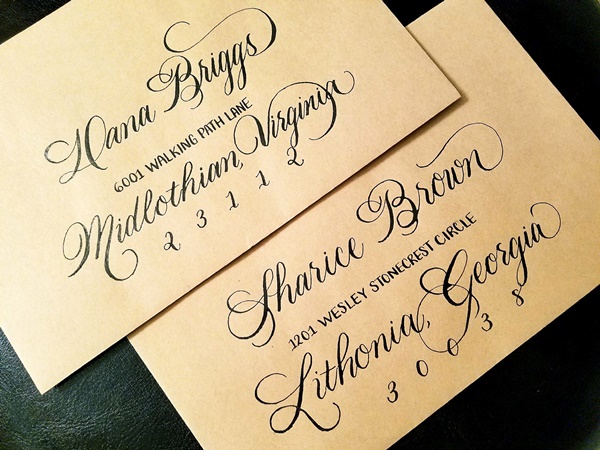 Hana Briggs
6001 WALKING PATH LANE
Midlothian, Virginia
23112
Sharice Brown
1201 WESLEY STONECREST CIRCLE
Lithonia, Georgia
30038